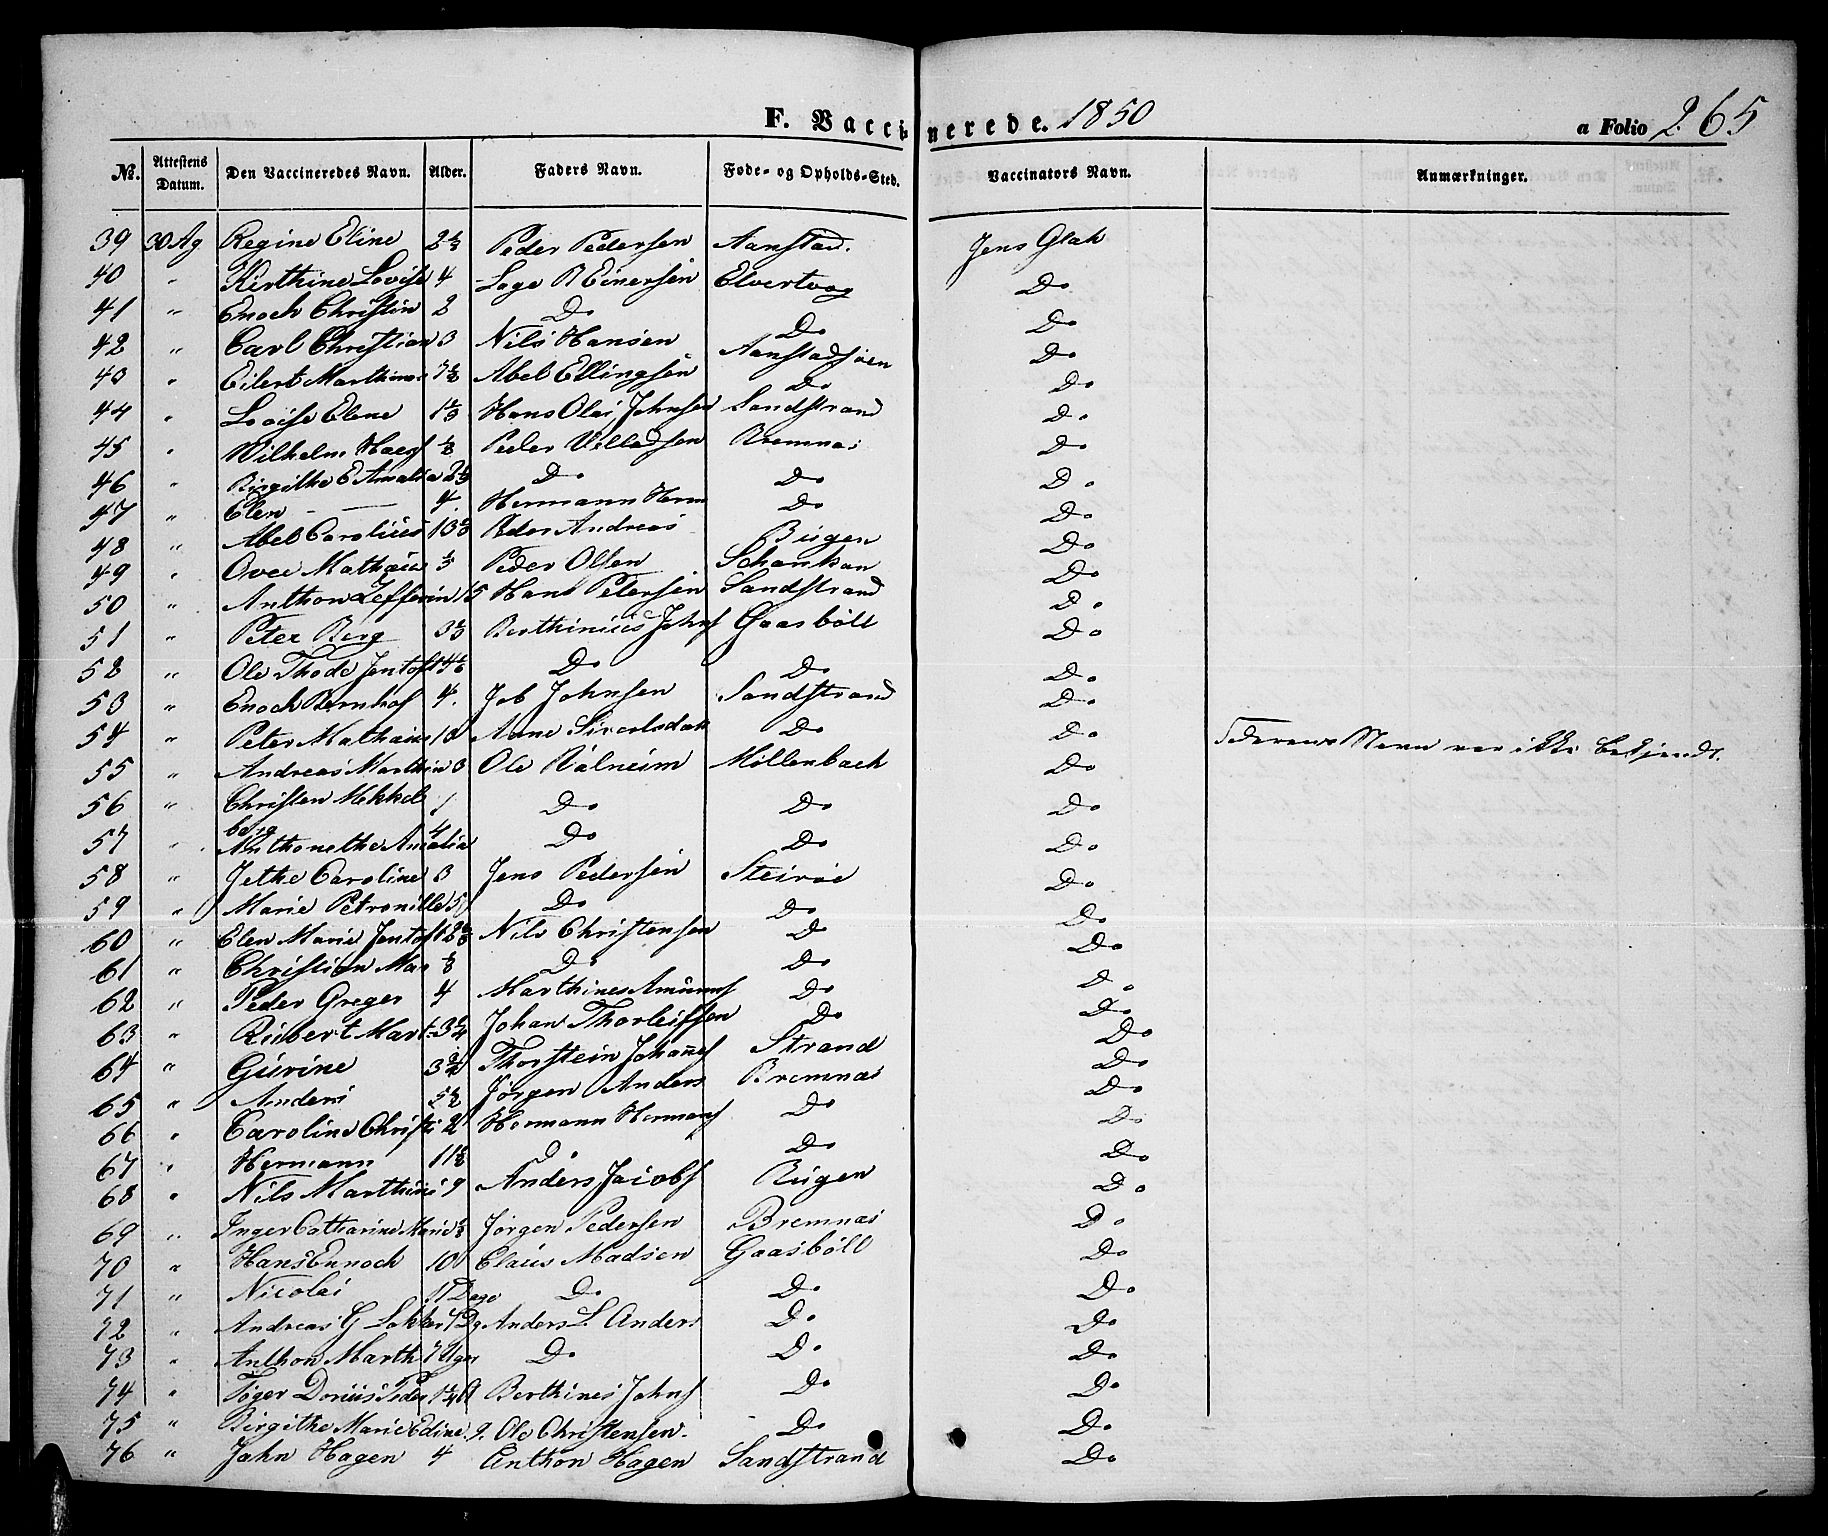 F. Vaccinerede. 1850 a Folio 265
No. Attestens Datum. Den Vaccineredes Navn. Alder. Faders Navn. Føde- og Opholds-Sted. Vaccinators Navn. Anmærkninger.
39 30 Ag Regine Eline 2 1/2 Peder Pedersen Aanstad. Jens Glak
40 " Lovise 4 Einersen Elvertvog Do
41 " Enoch Christin 2 Do Do Do
42 " Carl Christian 3 Nils Hansen Aanstadsøen Do
43 " Eilert Marthinus 7 1/2 Abel Ellingsen Do Do
44 " Lovise Elene Hans Olai Johnsen Sandstrand Do
45 " Wilhelm Peder Villadsen Bremnæs Do
46 " Birgithe E Amalia Do Do Do
47 " Elen 4 Hermann Herm Do Do
48 " Abel Carolius Peder Andreas Do
49 " Ovee Mathæus Peder Olsen Do
50 " Anthon Zefferin 15 Hans Petersen Sandstrand Do
51 " Peter Berg Berthinius Johns Gaasbøll Do
52 " Ole Thode Jentof Do Do Do
53 " Enoch Bernhof 4. Job Johnsen Sandstrand Do
54 " Peter Mathæus 10 Anne Do Do Faderens Navn var ikke bekjendt.
55 " Andreas Marthin 3 Ole Møllenbach Do
56 " Christen Mekkel 1 Do Do Do
berg
57 " Anthonethe Amalia 4 Do Do Do
58 " Jethe Caroline 3 Jens Pedersen Steirøe Do
59 " Marie Petronille 5 Do Do Do
60 " Elen Marie Jentof Nils Christensen Do Do
61 " Christian Mar Do Do Do
62 " Peder Greger 4 Marthines Amunds Do Do
63 " Rubert Mart Johan Thorleifsen Do Do
64 " Gurine Thorstein Johans Strand Do
65 " Anders Jørgen Anders Bremnæs Do
66 " Caroline Christi 2 Hermann Hermans Do Do
67 " Hermann 11 1/2 Do Do Do
68 " Nils Marthinus 9 Anders Jacobs Do
69 " Inger Catharine Marie Jørgen Pedersen Bremnæs Do
70 " Hans Ennoch 10 Claus Madsen Gaasbøll Do
71 " Nicolai 11 Dage Do Do Do
72 " Andreas G Anders L Anders Do Do
73 " Anthon Marth 7 Uger Do Do Do
74 " Dorius Peder Berthines Johns Do Do
75 " Birgithe Marie Edine 9. Ole Christensen. Do Do
76 " Jahn Hagen 4 Anthon Hagen Sandstrand Do